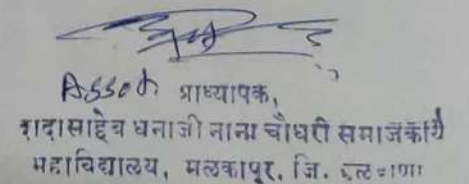 Assot प्राध्यापक,
दादासाहेब धनाजी नाना चौधरी समाजकार्य
महाविद्यालय, मलकापूर, जि. बुलडाणा